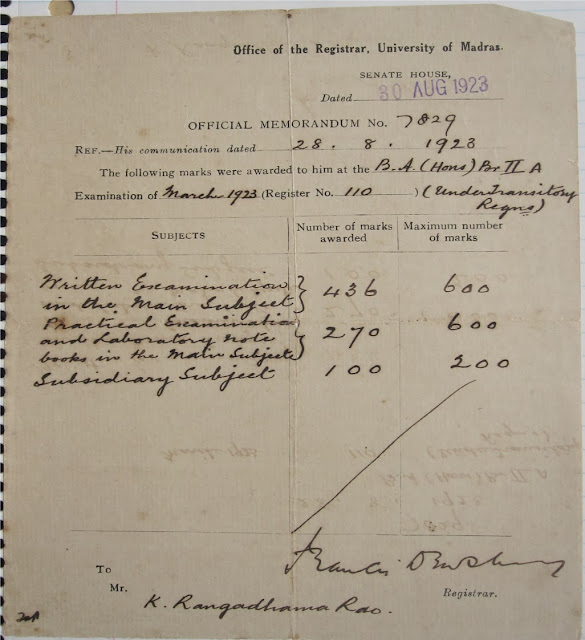 Office of the Registrar, University of Madras.
SENATE HOUSE,
Dated 30 AUG 1923
OFFICIAL MEMORANDUM No. 7829
REF.—His communication dated 28. 8. 1923
The following marks were awarded to him at the B.A. (Hons) Br II A
Examination of March 1923 (Register No. 110) (Under Transitory
Regns)
SUBJECTS
Number of marks
awarded
Maximum number
of marks
Written Examination
in the Main Subject } 436 600
Practical Examination
and Laboratory note
books in the Main Subject } 270 600
Subsidiary Subject 100 200
Francis
Registrar.
To
Mr.
K. Rangadhama Rao.